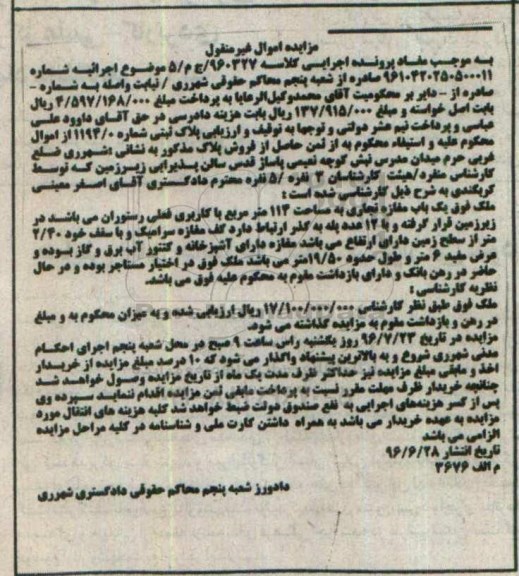 مزایده اموال غیرمنقول
به موجب مفاد پرونده اجرایی کلاسه ۹۶۰۳۲۷/ج م/۵ موضوع اجرائیه شماره
۹۶۱۰۴۲۰۲۵۰۵۰۰۰۱۱ صادره از شعبه پنجم محاکم حقوقی شهرری / نیابت واصله به شماره -
صادره از - دایر بر محکومیت آقای محمدوکیل‌الرعایا به پرداخت مبلغ ۴/۵۹۷/۱۶۸/۰۰۰ ریال
بابت اصل خواسته و مبلغ ۱۳۷/۹۱۵/۰۰۰ ریال بابت هزینه دادرسی در حق آقای داوود علی
عباسی و پرداخت نیم عشر دولتی و توجها به توقیف و ارزیابی پلاک ثبتی شماره ۱۱۹۴/۰ از اموال
محکوم علیه و استیفاء محکوم به از ثمن حاصل از فروش پلاک مذکور به نشانی :شهرری ضلع
غربی حرم میدان مدرس نبش کوچه نعیمی پاساژ قدس سالن پذیرایی زیرزمین که توسط
کارشناس منفرد/هیئت کارشناسان ۳ نفره /۵ نفره محترم دادگستری آقای اصغر معینی
کربکندی به شرح ذیل کارشناسی شده است :
ملک فوق یک باب مغازه تجاری به مساحت ۱۱۳ متر مربع با کاربری فعلی رستوران می باشد در
زیرزمین قرار گرفته و با ۱۲ عدد پله به گذر ارتباط دارد کف مغازه سرامیک و با سقف خود ۲/۴۰
متر از سطح زمین دارای ارتفاع می باشد مغازه دارای آشپزخانه و کنتور آب برق و گاز بوده و
عرض مفید ۶ متر و طول حدود ۱۹/۵۰متر می باشد ملک فوق در اختیار مستاجر بوده و در حال
حاضر در رهن بانک و دارای بازداشت مقوم به محکوم علیه فوق می باشد.
نظریه کارشناسی :
ملک فوق طبق نظر کارشناس ۱۷/۱۰۰/۰۰۰/۰۰۰ ریال ارزیابی شده و به میزان محکوم به و مبلغ
در رهن و بازداشت مقوم به مزایده گذاشته می شود.
مزایده در تاریخ ۹۶/۷/۲۳ روز یکشنبه راس ساعت ۹ صبح در محل شعبه پنجم اجرای احکام
مدنی شهرری شروع و به بالاترین پیشنهاد واگذار می شود که ۱۰ درصد مبلغ مزایده از خریدار
اخذ و مابقی مبلغ مزایده نیز حداکثر ظرف مدت یک ماه از تاریخ مزایده وصول خواهد شد
چنانچه خریدار ظرف مهلت مقرر نسبت به پرداخت مابقی ثمن مزایده اقدام ننماید سپرده وی
پس از کسر هزینه‌های اجرایی به نفع صندوق دولت ضبط خواهد شد کلیه هزینه های انتقال مورد
مزایده به عهده خریدار می باشد به همراه داشتن کارت ملی و شناسنامه در کلیه مراحل مزایده
الزامی می باشد
تاریخ انتشار ۹۶/۶/۲۸
م الف ۳۶۷۶
دادورز شعبه پنجم محاکم حقوقی دادگستری شهرری